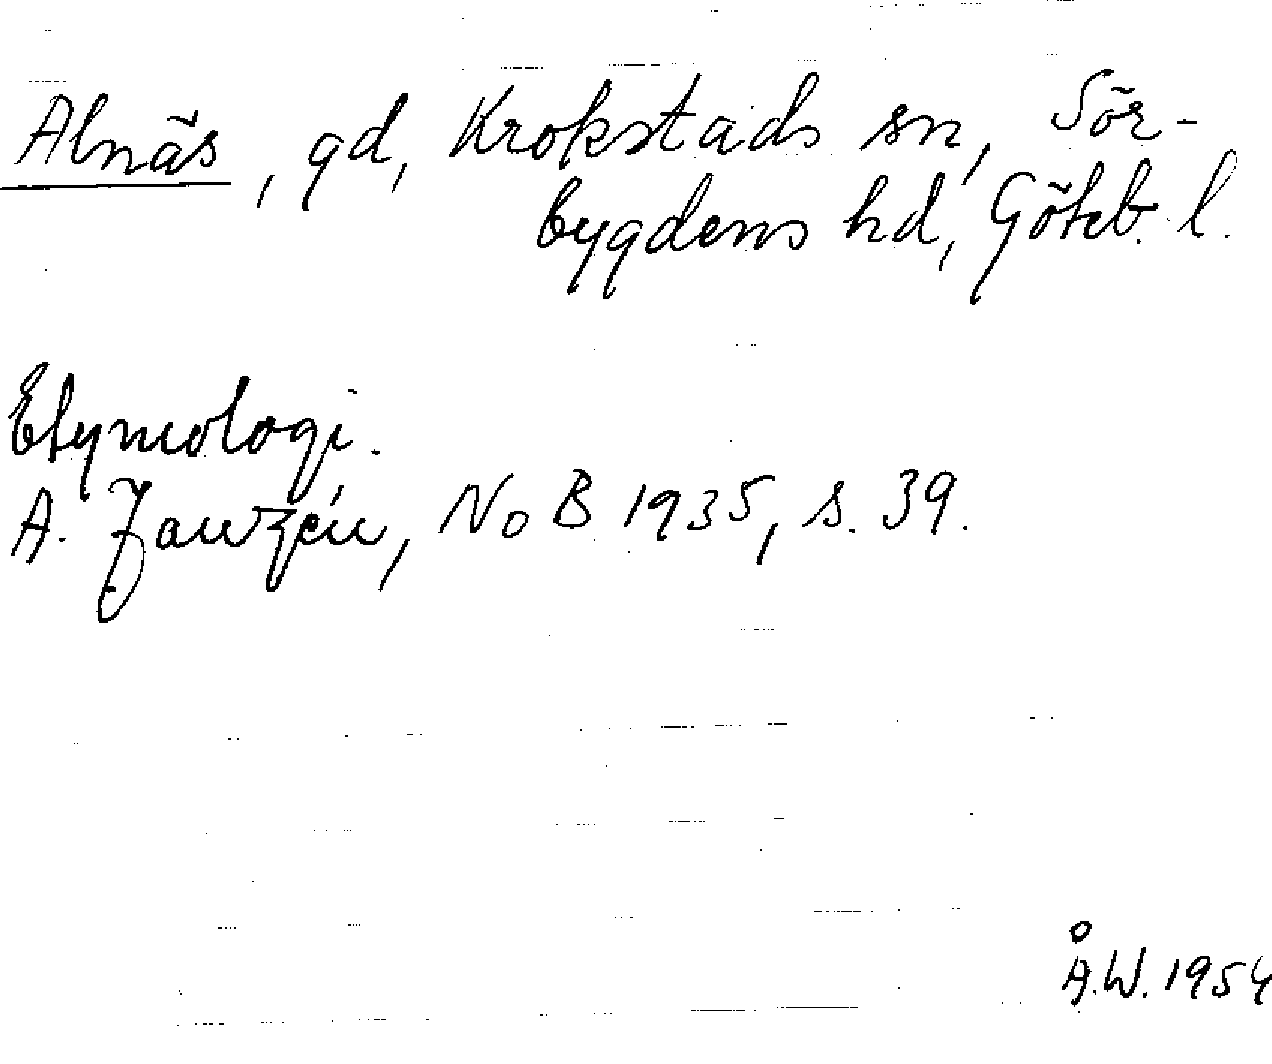 Alnäs, gd, Krokstads sn, Sör-
bygdens hd, Göteb. l.
Etymologi.
A. Janzén, NoB 1935, s. 39.
Å.W. 1954